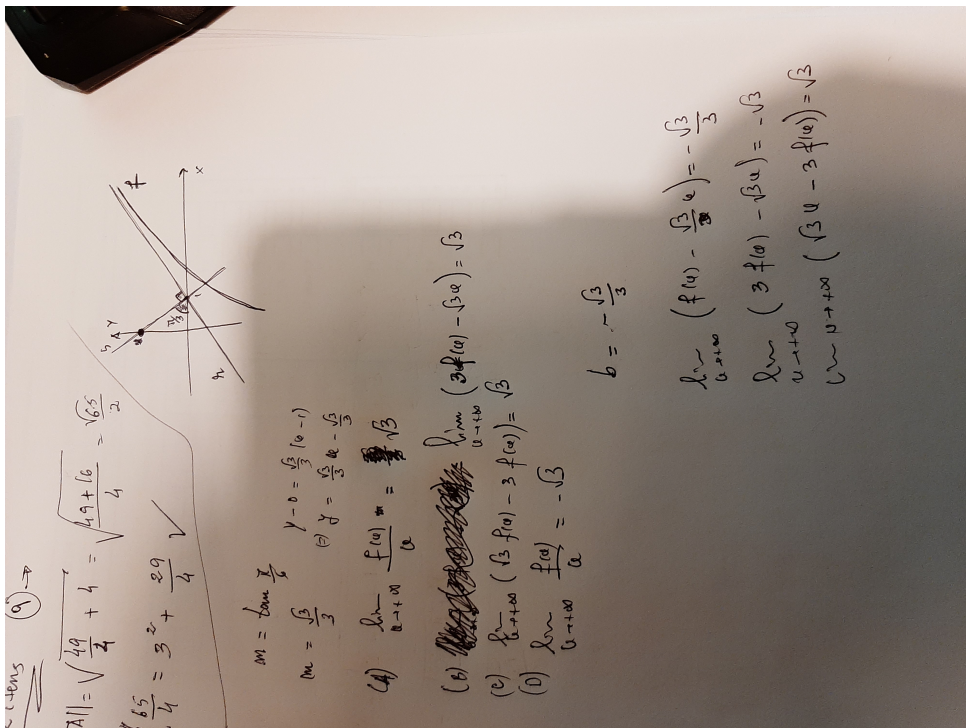 Itens 9) →
A|| = √(49/4 + 4) = √((49+16)/4) = √65/2
65/4 = 3² + 29/4 ✓
s
y
π/3
1
f
x
r
m = tan π/6
m = √3/3
y - 0 = √3/3 (x - 1)
(=) y = √3/3 x - √3/3
(A) lim x→+∞ f(x)/x = √3
(B) lim x→+∞ (3f(x) - √3x) = √3
(C) lim x→+∞ (√3 f(x) - 3 f(x)) = √3
(D) lim x→+∞ f(x)/x = -√3
b = -√3/3
lim x→+∞ (f(x) - √3/3 x) = -√3/3
lim x→+∞ (3 f(x) - √3x) = -√3
lim x→+∞ (√3x - 3 f(x)) = √3